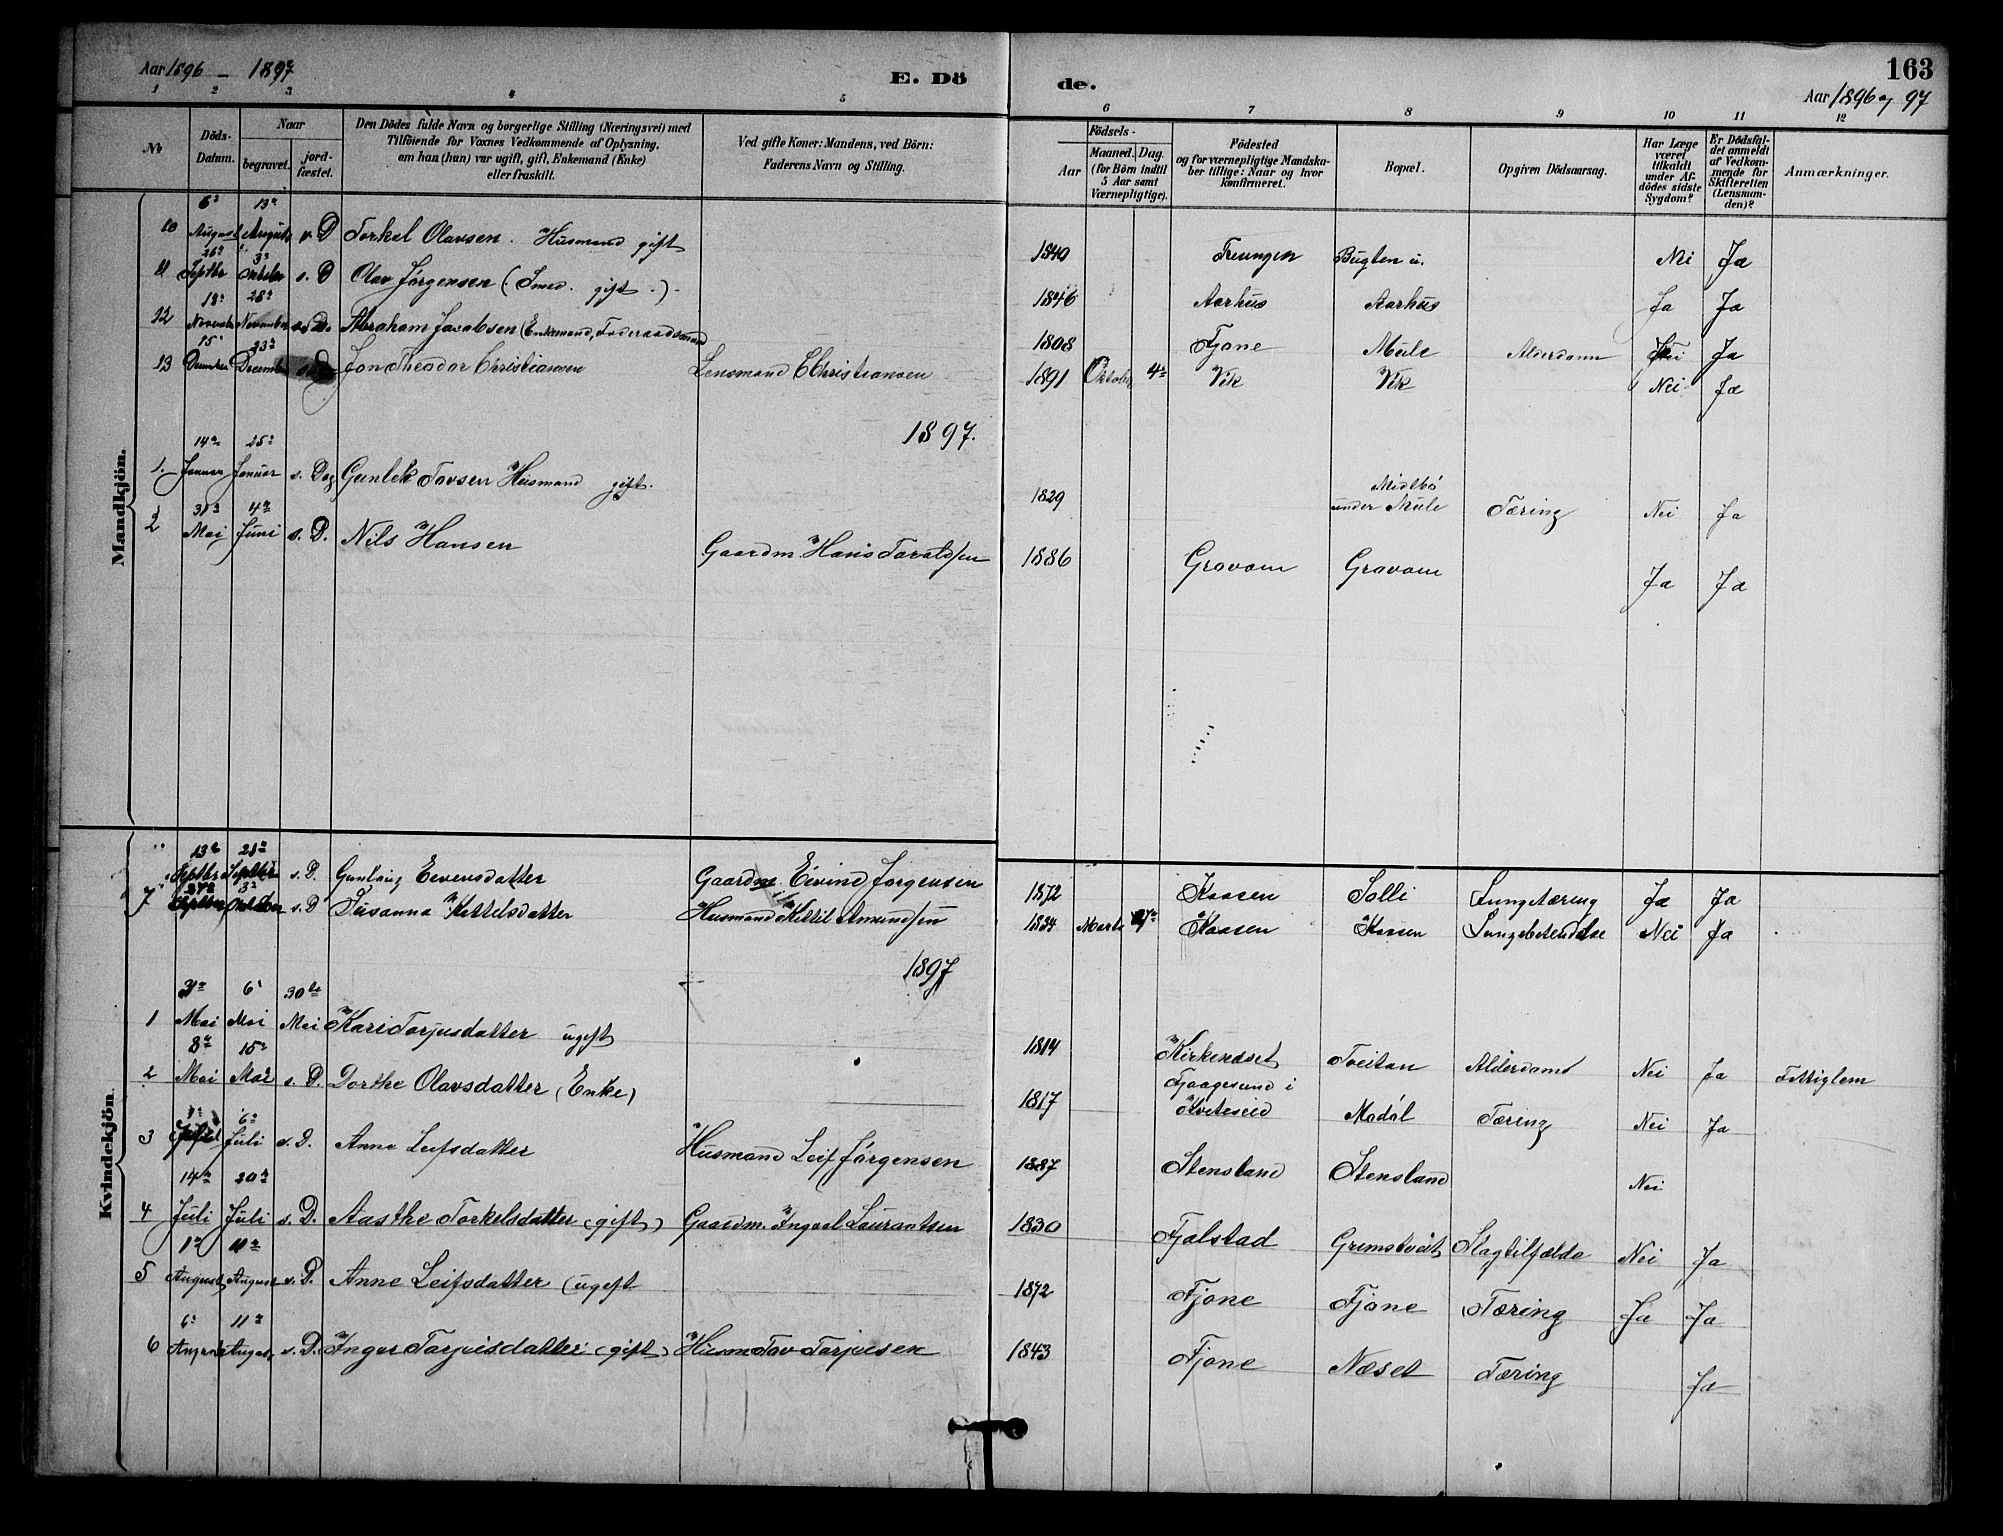 Aar 1896 – 1897
E. Dö
de.
163
Aar 1896 og 97
1 2 3 4 5 6 7 8 9 10 11 12
No
Döds-
Datum.
Naar
begravet.
jord-
fæstet.
Den Dödes fulde Navn og borgerlige Stilling (Næringsvei) med
Tilföiende for Voxnes Vedkommende af Oplysning,
om han (hun) var ugift, gift, Enkemand (Enke)
eller fraskilt.
Ved gifte Koner: Mandens, ved Börn:
Faderens Navn og Stilling.
Födsels-
Aar
Maaned. Dag.
(for Börn indtil
5 Aar samt
Værnepligtige).
Födested
og for værnepligtige Mandska-
ber tillige: Naar og hvor
konfirmeret.
Bopæl.
Opgiven Dödsaarsag.
Har Læge
været
tilkaldt
under Af-
dödes sidste
Sygdom?
Er Dödsfal-
det anmeldt
af Vedkom-
mende for
Skifteretten
(Lensman-
den)?
Anmærkninger.
Mandkjön.
10 6te August 13de August s. D Torkel Olavsen. Husmand gift 1840 Treungen Bugten u. Nei Ja
11 26de Septbr 3de Oktober s. D Olav Jörgensen (Smed. gift.) 1846 Aarhus Aarhus Ja Ja
12 18de November 28de November s. D. Abraham Jacobsen (Enkemand, Föderaadsmand 1808 Fjone Mule Alderdom Nei Ja
13 15 December 23de December Jon Theodor Christiansen Lensmand C Christiansen 1891 Oktober 4de Vik Vik Nei Ja
1897.
1. 14de Januar 25de Januar s. Dag Gunlek Tovsen Husmand gift. 1829 Midtbö under Mule Tæring Nei Ja
2 31te Mai 4de Juni s. D. Nils Hansen Gaardm. Hans Taraldsen 1886 Gravom Gravom Ja Ja
Kvindekjön.
13de Septbr 21de Septbr s. D. Gunlaug Eevensdatter Gaardm. Eivind Jörgensen 1872 Kaasen Solli Lungetæring Ja Ja
7 27de Septber 3de Oktober s. D Susanna Kittelsdatter Husmand Kittil Amundsen 1894 Marts Kaasen Kaasen Lungebetændelse Nei Ja
1897
1 3de Mai 6 Mai 30te Mai Kari Torjusdatter ugift 1814 Kirkenæset Tveitan Alderdoms Nei Ja Fattiglem
2 8de Mai 15de Mai s. D. Dorthe Olavsdatter (Enke) 1817 Fjaagesund i Kviteseid Modal Tæring Nei Ja
3 Juli 6te Juli s. D. Anne Leifsdatter Husmand Leif Jörgensen 1887 Stensland Stensland Nei
4 14de Juli 20de Juli s. D. Aasthe Torkelsdatter (gift) Gaardm. Ingvel Laurantsen 1830 Fjalstad Gremstveit Slagtilfælde Nei Ja
5 1te August 11te August s. D. Anne Leifsdatter (ugift 1872 Fjone Fjone Tæring Ja Ja
6 6te August 11te August s. D. Inger Torjusdatter (gift) Husm Tov Torjusen 1843 Fjone Næset Tæring Ja